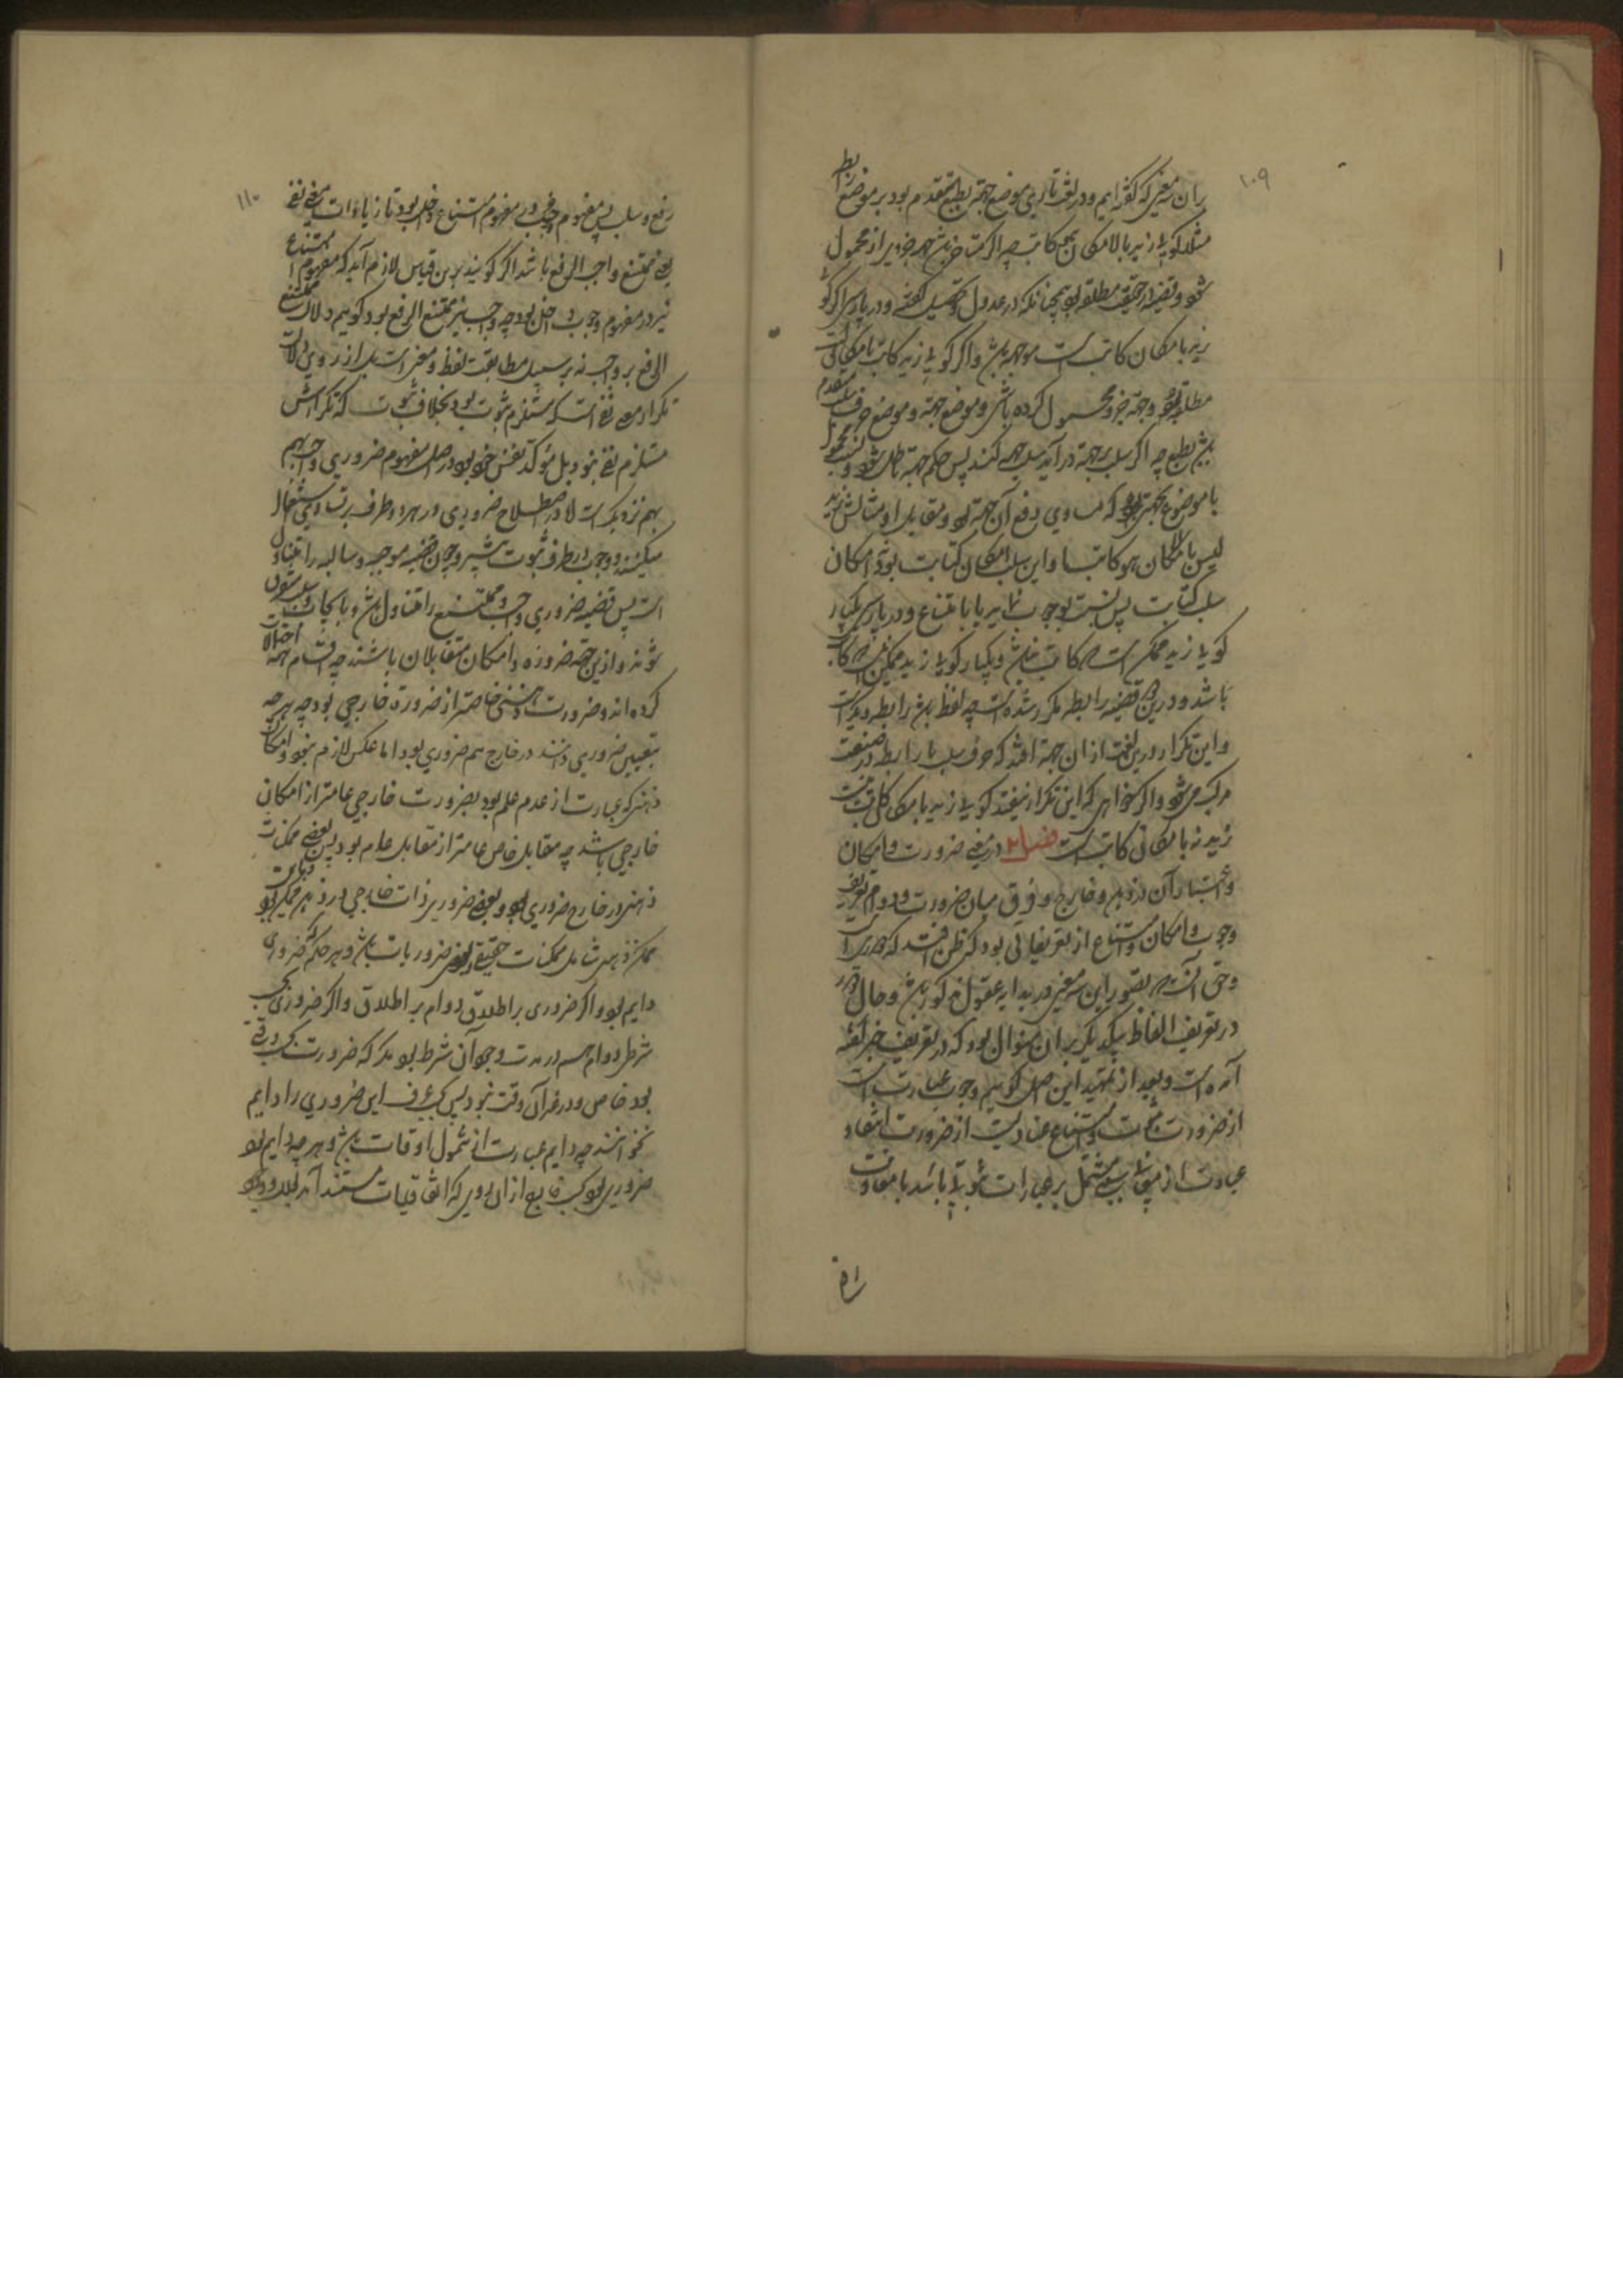 ۱۰۹
بران معنی که گفته‌ایم و در لغت تازی موضع جهة بطبع مقدم بود بر موضع رابطه
مثلا گویند زید بالامکان کاتب چه اگر متاخر باشد جزوی از محمول
شود و قضیه در حقیقت مطلقه بود همچنانکه در عدول و تحصیل گفته و در پارسی اگر گو
زید بامکان کاتب است موجهه باشد و اگر گویند زید کاتب بامکان است
مطلقه بود و جهة جزو محمول کرده باشی و موضع جهة و موضع حرف سلب مقدم
باشد بطبع چه اگر سلب بر جهة درآید سلب جهة کند پس حکم جهة باطل شود و نسبت محمول
با موضوع بجهتی بود که مساوی رفع آن جهة بود و مقابل او مثالش زید
لیس بالامکان هو کاتبا و این سلب امکان کتابت بود نه امکان
سلب کتابت پس نسبت بوجوب باشد یا بامتناع و در پارسی یکبار
گویند زید ممکن است که کاتب نباشد و یکبار گویند زید ممکن نیست که کاتب
باشد و درین قضیه رابطه مکرر شده است چه لفظ باشد رابطه دیگر است
و این تکرار درین لغت از آن جهة افتد که حرف سلب با رابطه در صنعت
مرکب می‌شود و اگر خواهی که این تکرار نیفتد گویند زید بامکان کاتب نیست
زید نه بامکان کاتب است فصل در معنی ضرورت و امکان
و اعتبار آن در ذهن و خارج و فرق میان ضرورت و دوام تعریف
وجوب و امکان و امتناع از تعریفاتی بود که ظن افتد که دوری است
و حق آنست که تصور این سه معنی در بدایه عقول مرکوز باشد و حال
در تعریف الفاظ بیکدیگر بر آن منوال بود که در تعریف خبر گفته
آمده است و بعد از تمهید این اصل گوییم وجوب عبارت است
از ضرورت ثبوت و امتناع عبارتست از ضرورت انتفا و
عبارت از معنی سلبی مشتمل بر عبارات ثبوتی باشد با مقارنت
رفع
۱۱۰
رفع و سلب پس مفهوم وجوب در مفهوم امتناع داخل بود تا زیادت معنی نفی
یعنی ممتنع واجب الرفع باشد اگر گویند برین قیاس لازم آید که مفهوم امتناع
نیز در مفهوم وجوب داخل بود چه واجب نیز ممتنع الرفع بود گوییم دلالت ممتنع
الرفع بر واجب نه بر سبیل مطابقت لفظ و معنی است بل از روی دلالت
تکرار معنی نفی است که مستلزم ثبوت بود بخلاف ثبوت که تکرارش
مستلزم نفی نبود بل موکد نفس خود بود در اصل مفهوم ضروری و واجب بهم
بهم نزدیک است لا در اصطلاح ضروری در هر دو طرف برتساوی استعمال
میکنند و وجوب در طرف ثبوت بیشتر و چون قضیه موجبه و سالبه را متناول
است پس قضیه ضروری واجب و ممتنع را متناول باشد و بایجاب و سلب متلون
شوند و ازین جهة ضرورة و امکان متقابلان باشند چه اقسام همه احتمالات
کرده‌اند و ضرورت ذهنی خاصتر از ضرورة خارجی بود چه هرچه
بتعیین ضروری دانند در خارج هم ضروری بود اما عکس لازم نبود و امکان
ذهنی که عبارت از عدم علم بود بضرورت خارجی عامتر از امکان
خارجی باشد چه مقابل خاص عامتر از مقابل عام بود پس بعضی ممکنات
ذهنی در خارج ضروری بود و بعضی ضروریات خارجی در ذهن ممکن بود
ممکن ذهنی شامل ممکنات حقیقی و بعضی ضروریات باشد و هر حکم که ضروری
دایم بود و اگر ضروری بر اطلاق دوام بر اطلاق و اگر ضروری بحسب
شرط دوام هم در مدت وجود آن شرط بود مگر که ضرورت بحسب وقتی
بود خاص و در غیر آن وقت نبود پس بحسب عرف این ضروری را دایم
نخوانند چه دایم عبارت از شمول اوقات باشد و هرچه دایم بود
ضروری بود بحسب واقع از آن روی که اتفاقیات مستند